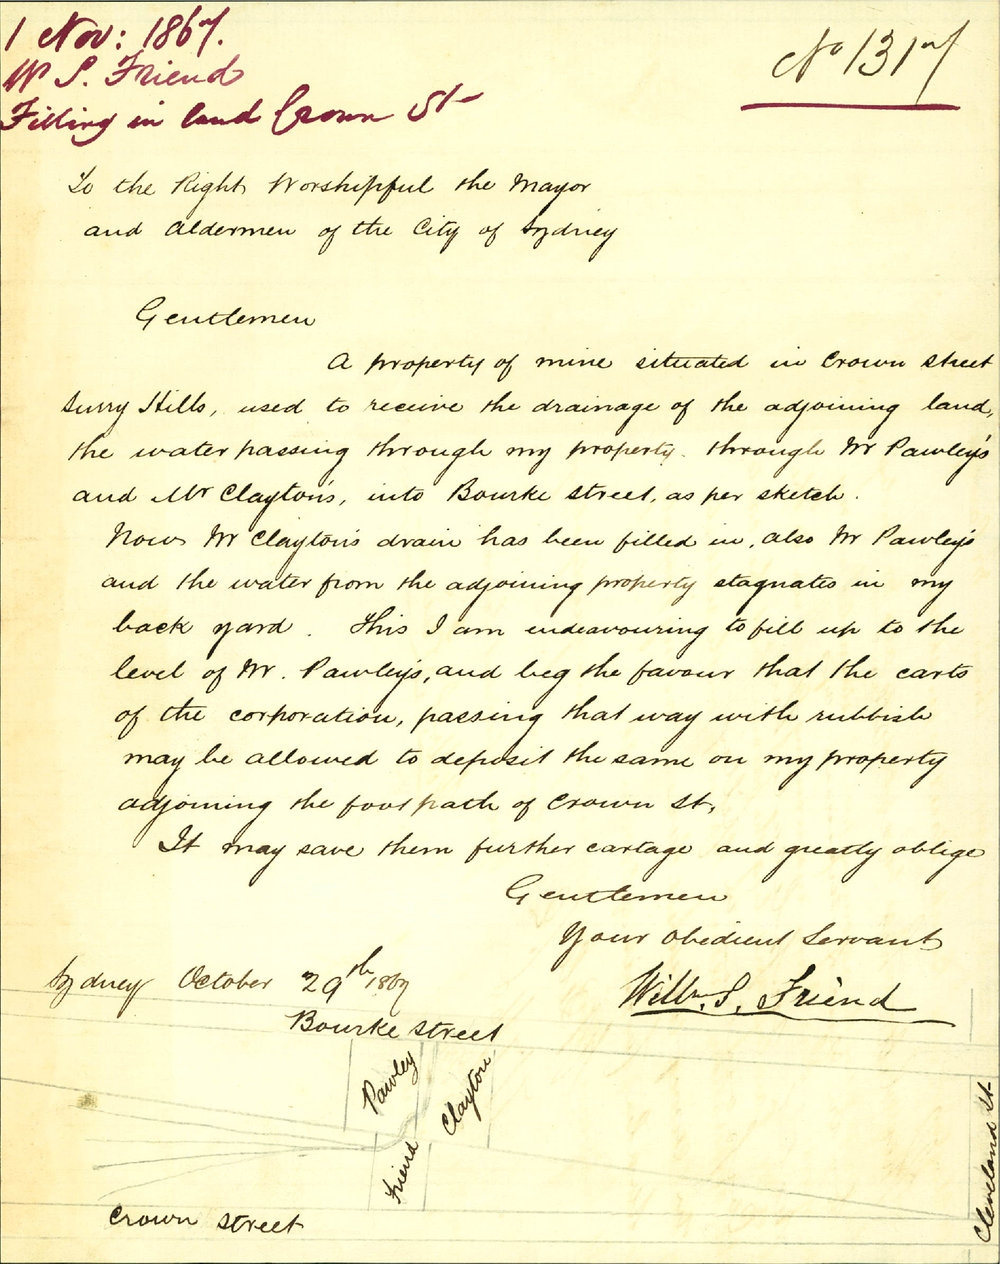 1 Nov: 1867.
W S. Friend
Filling in land Crown St
No 1317
To the Right Worshipful the Mayor
and Aldermen of the City of Sydney
Gentlemen
A property of mine situated in Crown Street
Surry Hills, used to receive the drainage of the adjoining land,
the water passing through my property through Mr Pawley's
and Mr Clayton's, into Bourke Street, as per sketch.
Now Mr Clayton's drain has been filled in, also Mr Pawley's
and the water from the adjoining property stagnates in my
back yard. This I am endeavouring to fill up to the
level of Mr. Pawley's, and beg the favour that the carts
of the corporation, passing that way with rubbish
may be allowed to deposit the same on my property
adjoining the foot path of Crown St,
It may save them further cartage and greatly oblige
Gentlemen
Your Obedient Servant
Willm. S. Friend
Sydney October 29th 1867
Bourke Street
Pawley
Clayton
Friend
Crown Street
Cleveland St